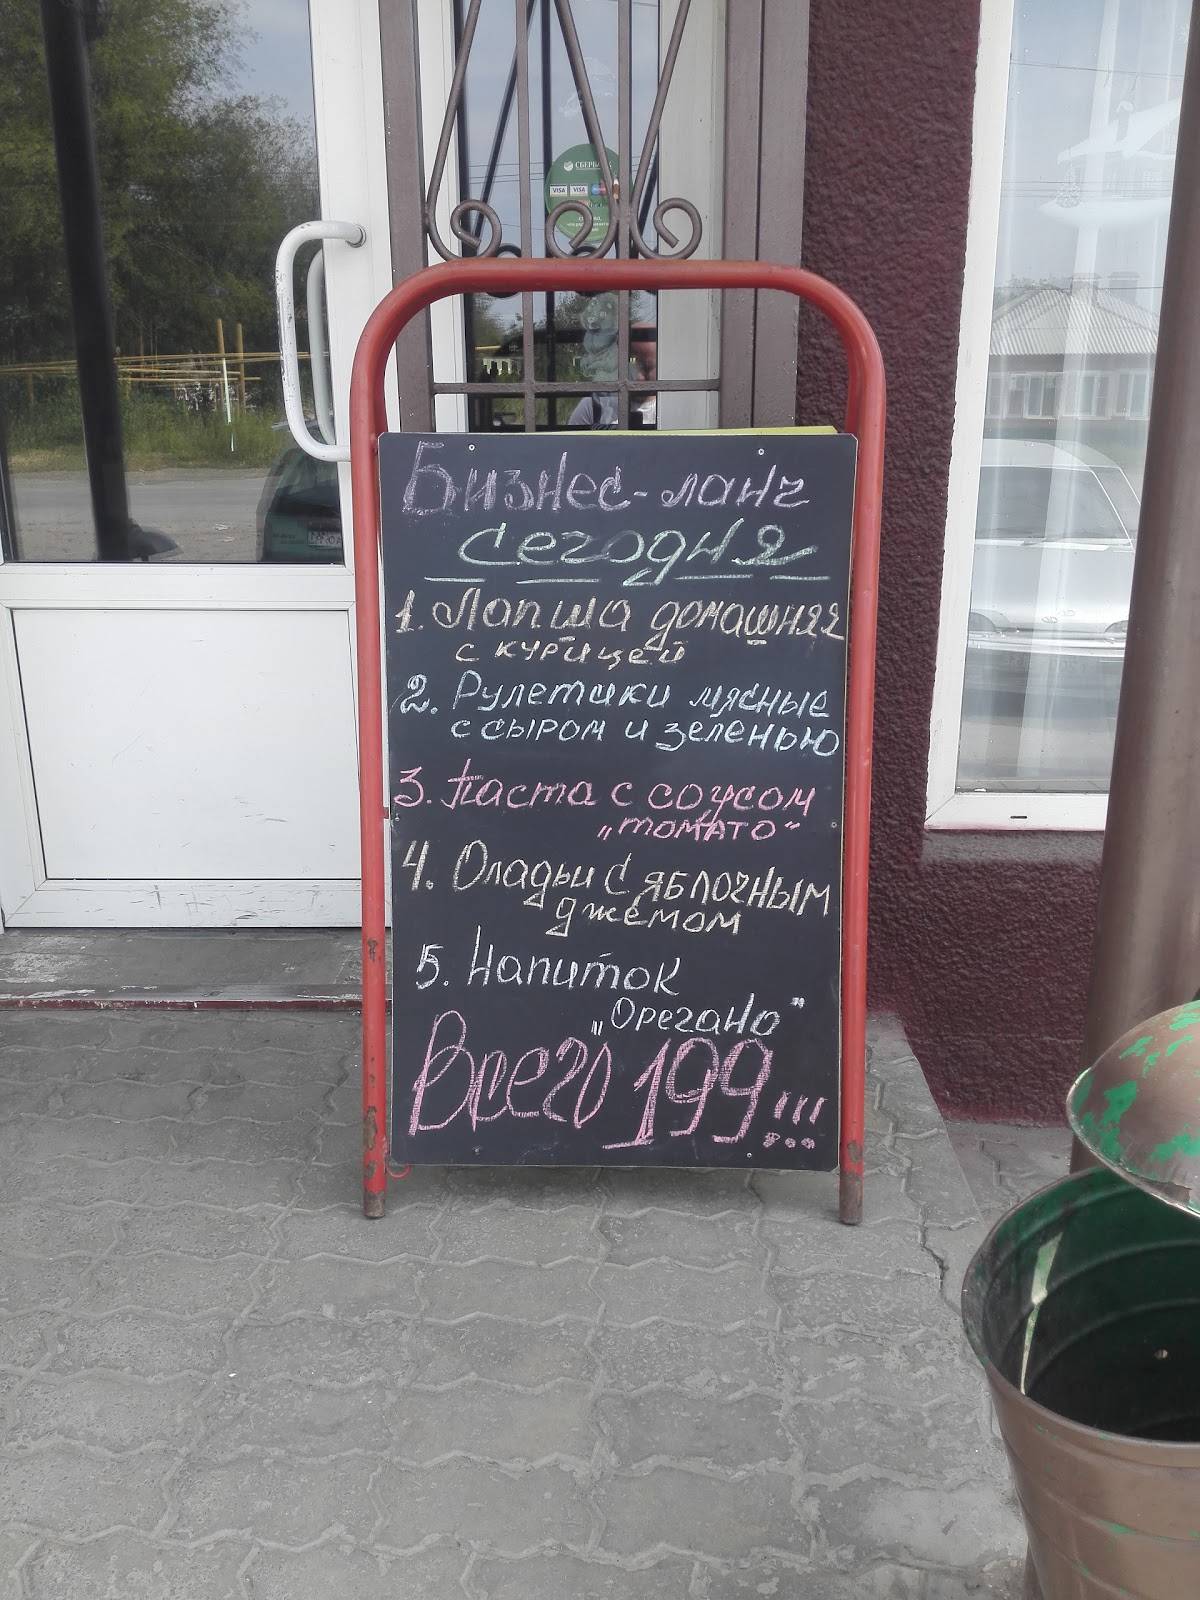 СБЕРБАНК
VISA VISA
Бизнес-ланч
сегодня
1. Лапша домашняя
с курицей
2. Рулетики мясные
с сыром и зеленью
3. Паста с соусом
„томато“
4. Оладьи с яблочным
джемом
5. Напиток
„Орегано”
Всего 199!!!